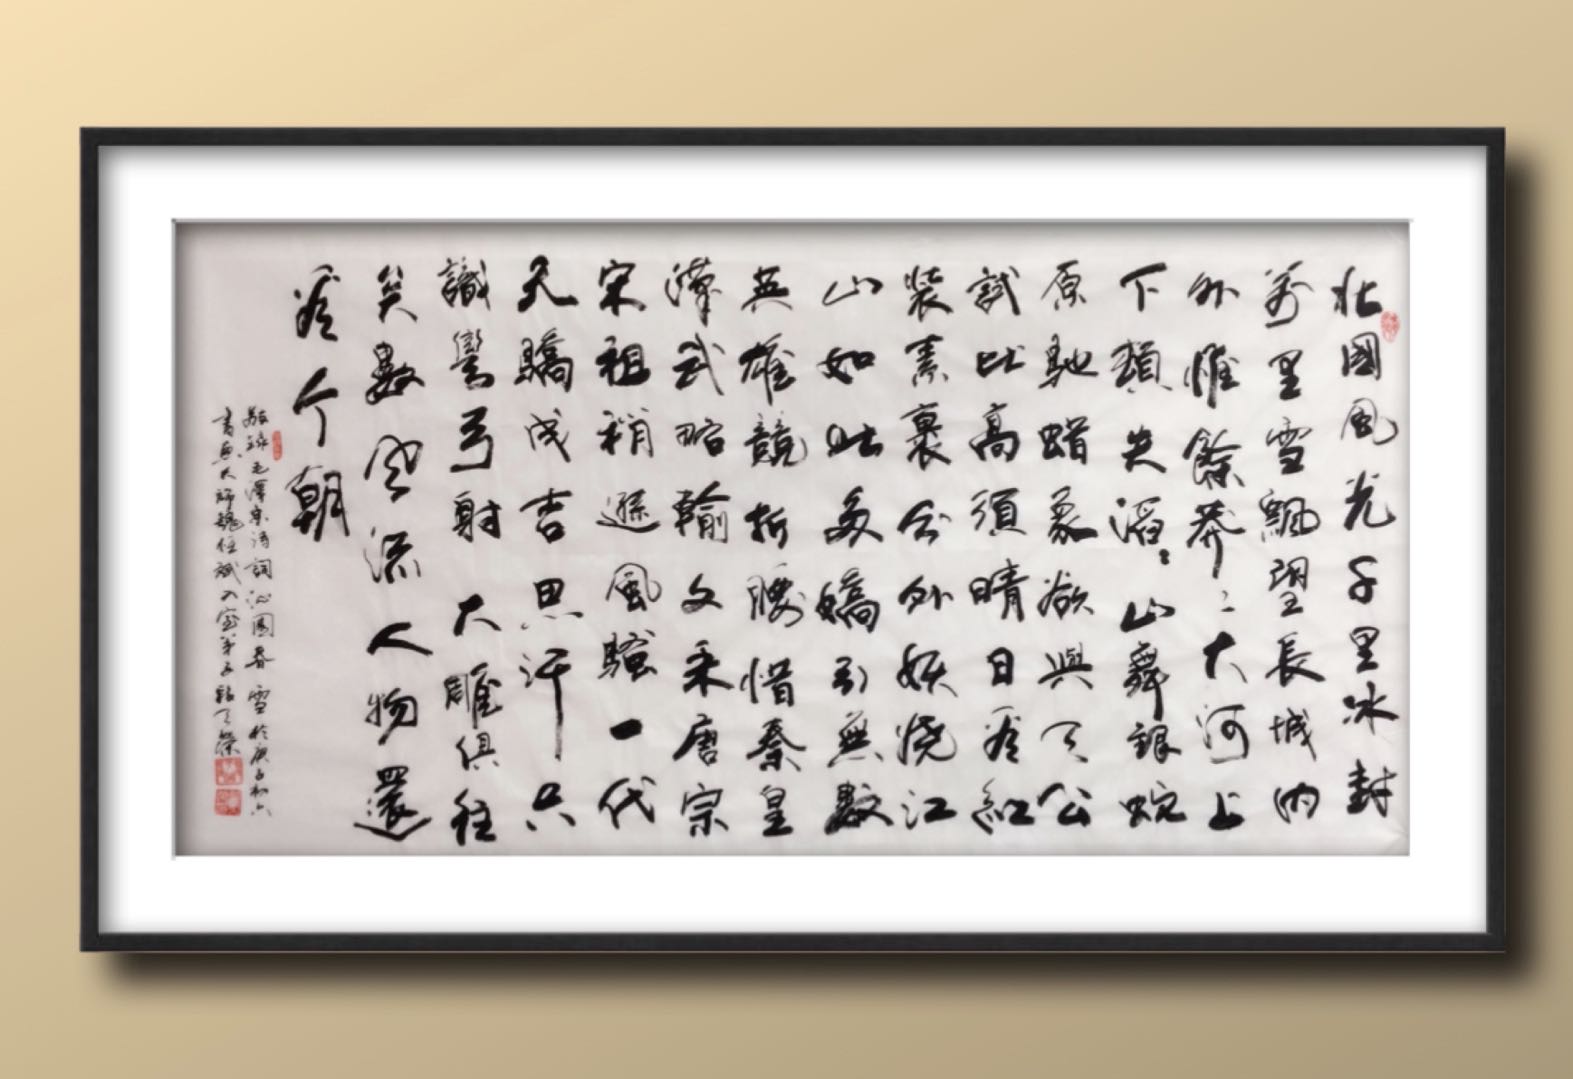 北國風光千里冰封
萬里雪飄望長城内
外惟餘莽々大河上
下頓失滔々山舞銀蛇
原馳蜡象欲與天公
試比高須晴日看紅
裝素裹分外妖娆江
山如此多嬌引無數
英雄競折腰惜秦皇
漢武略輸文采唐宗
宋祖稍遜風騷一代
天驕成吉思汗只
識彎弓射大雕俱往
矣數風流人物還
看今朝
敬錄毛澤東诗詞沁園春雪於庚子初六
書画大師魏任斌入室弟子